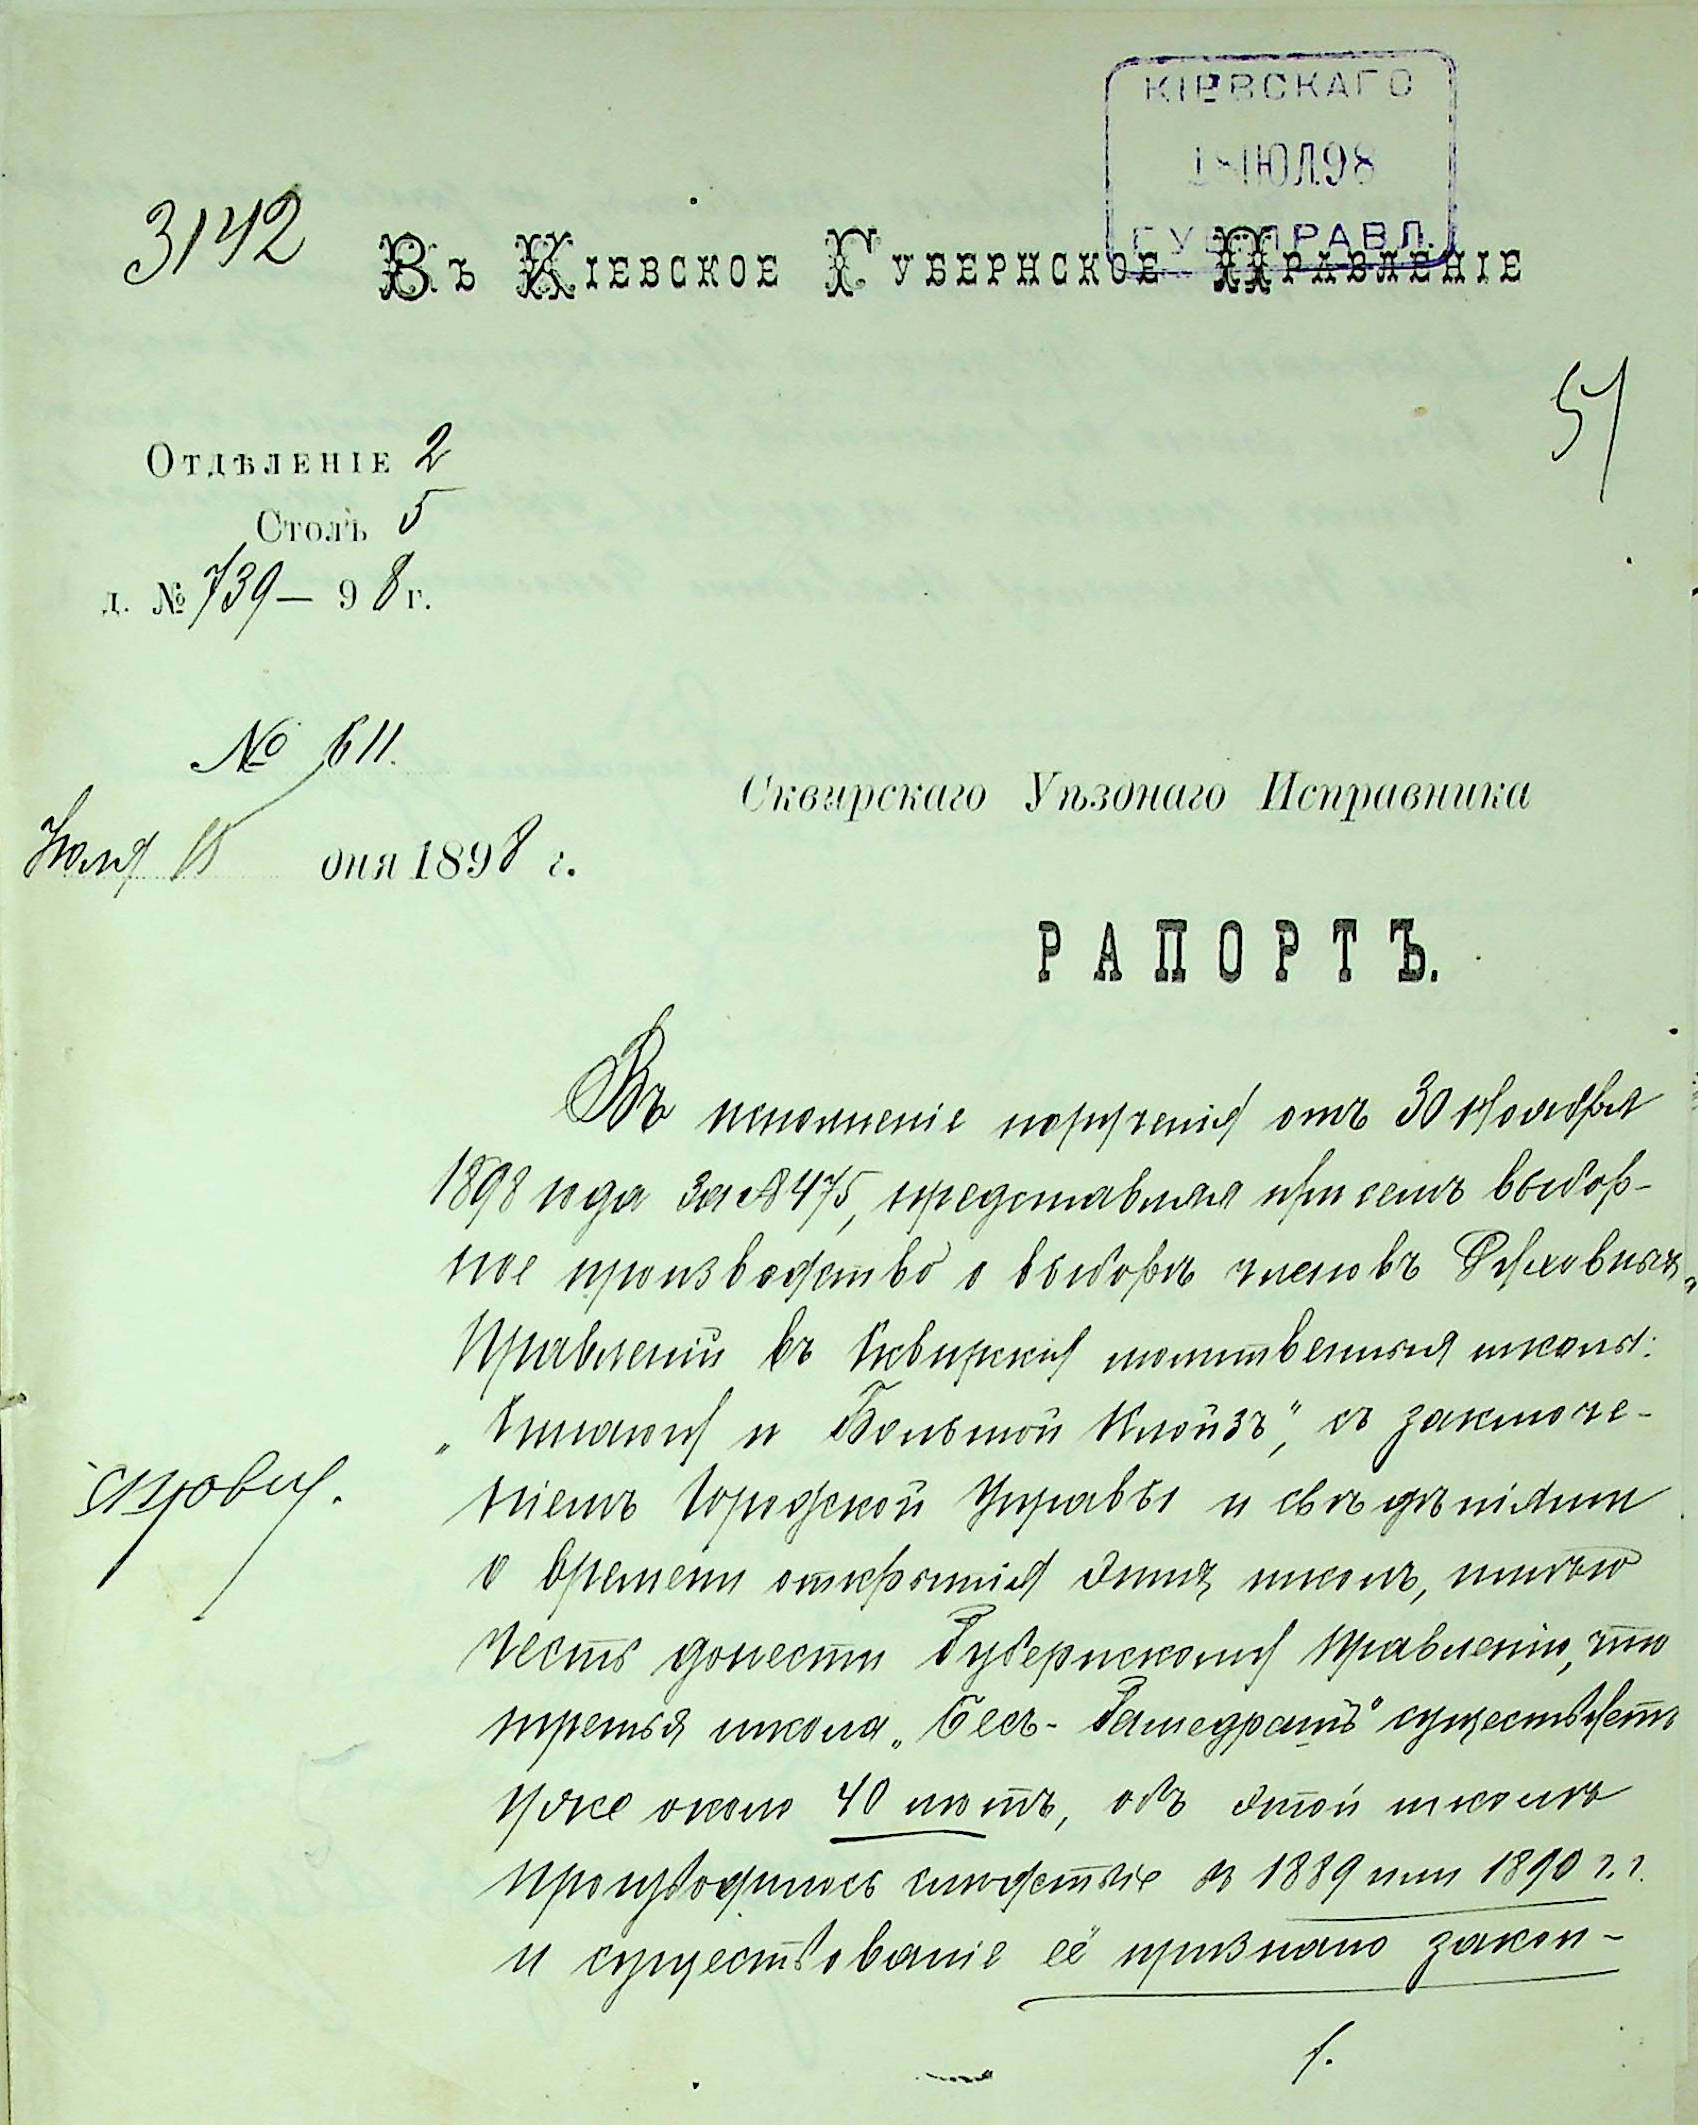 КІЕВСКАГО
18 ІЮЛ 98
ГУБ. ПРАВЛ.
3142
Въ Кіевское Губернское Правленіе
51
Отдѣленіе 2
Столъ 5
д. № 739 — 98 г.
№ 611.
Іюля 15 дня 1898 г.
Сквирскаго Уѣзднаго Исправника
РАПОРТЪ.
Въ исполненіе порученія отъ 30 Ноября
1898 года за № 475, представляя при семъ выбор-
ное производство о выборѣ членовъ Духовныхъ
Правленій въ Сквирскія молитвенныя школы:
и Большой Клойзъ", съ заключе-
ніемъ Городской Управы и свѣдѣніями
о времени открытія этихъ школъ, имѣю
честь донести Губернскому Правленію, что
третья школа „Бесъ-Гамедрашъ" существуетъ
уже около 40 лѣтъ, объ этой школѣ
производилось слѣдствіе въ 1889 или 1890 г.г.
и существованіе её признано закон-